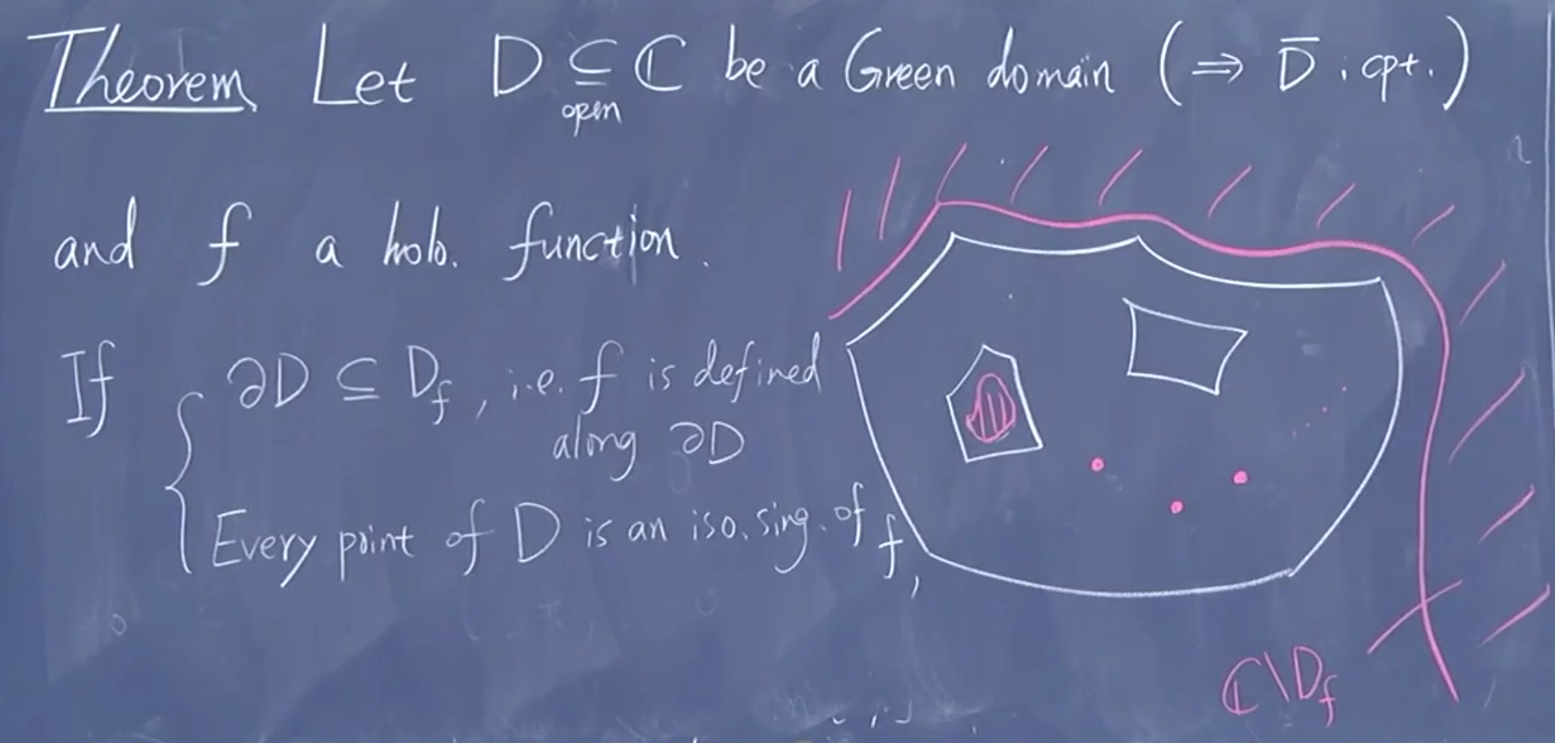 Theorem Let D ⊆ ℂ be a Green domain (⇒ D̄ : cpt.)
open
and f a holo. function.
If { ∂D ⊆ D_f, i.e. f is defined
along ∂D
Every point of D is an iso. sing. of f,
ℂ\D_f